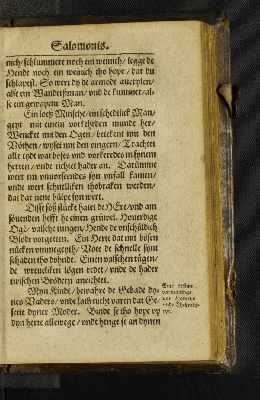 Salomonis.
nich/ schlummere noch ein weinich/ legge de
Hende noch ein weinich tho hope/ dat du
schlapest. So wert dy de armode auerylen/
alse ein Wandersman/ vnd de kummer/ al-
se ein gewapent Man.
Ein loetz Minsche/ ein schedtlick Man/
geyt mit einem vorkehrden munde her/
Wencket mit den Ogen/ betekent mit den
Vöthen/ wyset mit den vingern/ Trachtet
alle tydt wat böses vnd vorkerdes in synem
herten/ vnde richtet hader an. Darümme
wert em vnuorsendes syn vnfall kamen/
vnde wert schnellicken thobraken werden/
dat dar nene hülpe syn wert.
Disse söß stücke hatet de HEre/ vnd am
söuenden hefft he einen grüwel. Houerdige
Oge/ valsche tungen/ Hende de vnschüldich
Blodt vorgeten. Ein Herte dat mit bösen
nücken vmmegeyth/ Vöte de schnelle synt
schaden tho dohnde. Einen valschen tügen/
de wreuelicken lögen redet/ vnde de hader
twischen Brödern anrichtet.
Myn Kindt/ bewahre de Gebade dy-
nes Vaders/ vnde lath nicht varen dat Ge-
sette dyner Moder. Binde se tho hope vp
dyn herte allewege/ vnde henge se an dynen
Eine ernste
vormaninge
der Horerye
vnde